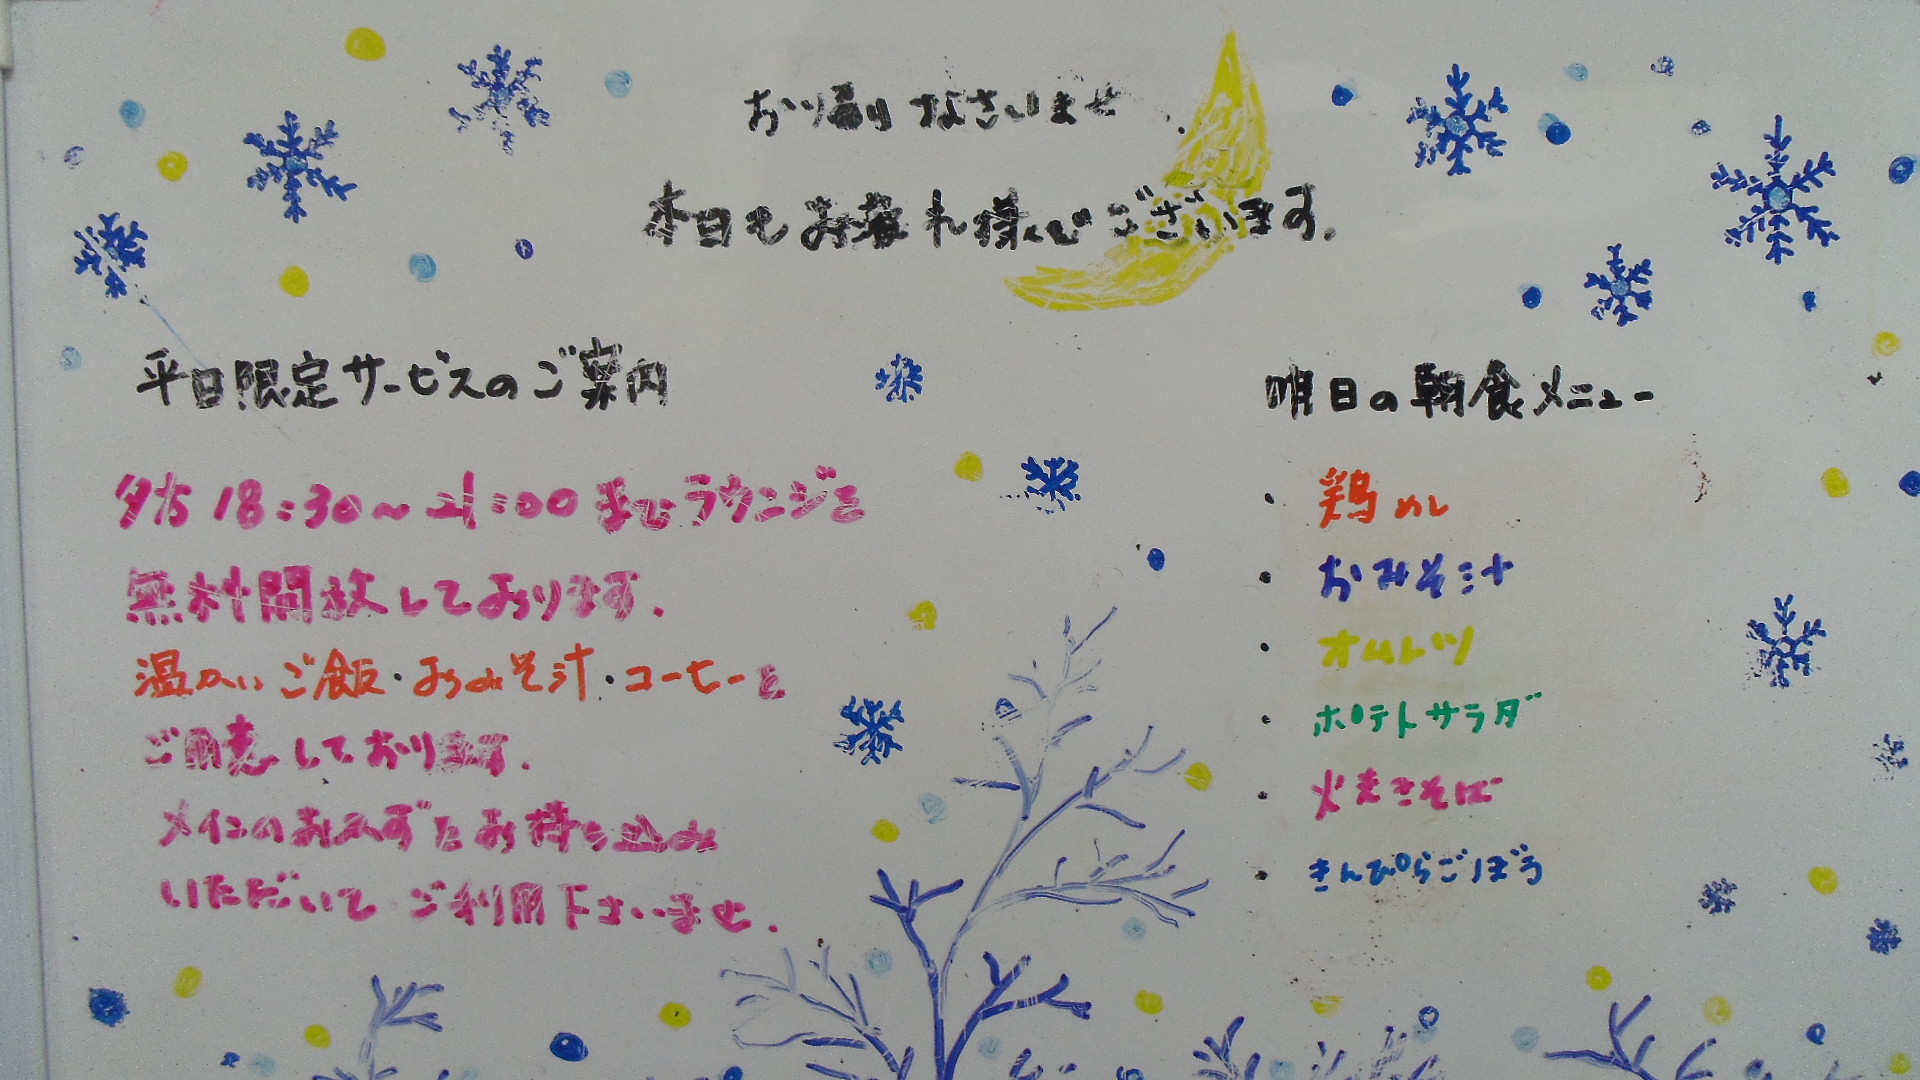 お帰りなさいませ
本日もお疲れ様でございます。
平日限定サービスのご案内
夕方 18:30～21:00までラウンジを
無料開放しております。
温かいご飯・おみそ汁・コーヒーを
ご用意しております。
メインのおかずをお持ち込み
いただいて ご利用下さいませ。
明日の朝食メニュー
・鶏めし
・おみそ汁
・オムレツ
・ポテトサラダ
・焼きそば
・きんぴらごぼう